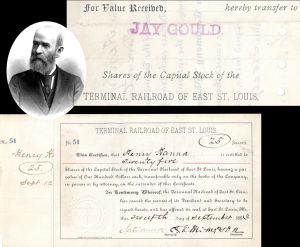 For Value Received, hereby transfer to
JAY GOULD
Shares of the Capital Stock of the
TERMINAL RAILROAD OF EAST ST. LOUIS,
TERMINAL RAILROAD OF EAST ST. LOUIS,
No. 51
25 Shares
This Certifies, that Henry Hanna is entitled to
Twenty five
Shares of the Capital Stock of the Terminal Railroad of East St. Louis, having a par
value of One Hundred Dollars each, transferable only on the books of the Company,
in person or by attorney, on the surrender of this Certificate.
In Testimony Whereof, the Terminal Railroad of East St. Louis
has caused the names of its President and Secretary to be
signed hereto, and has affixed its seal at East St. Louis, this
Twelfth day of September
51
Henry H
25
Sept 12